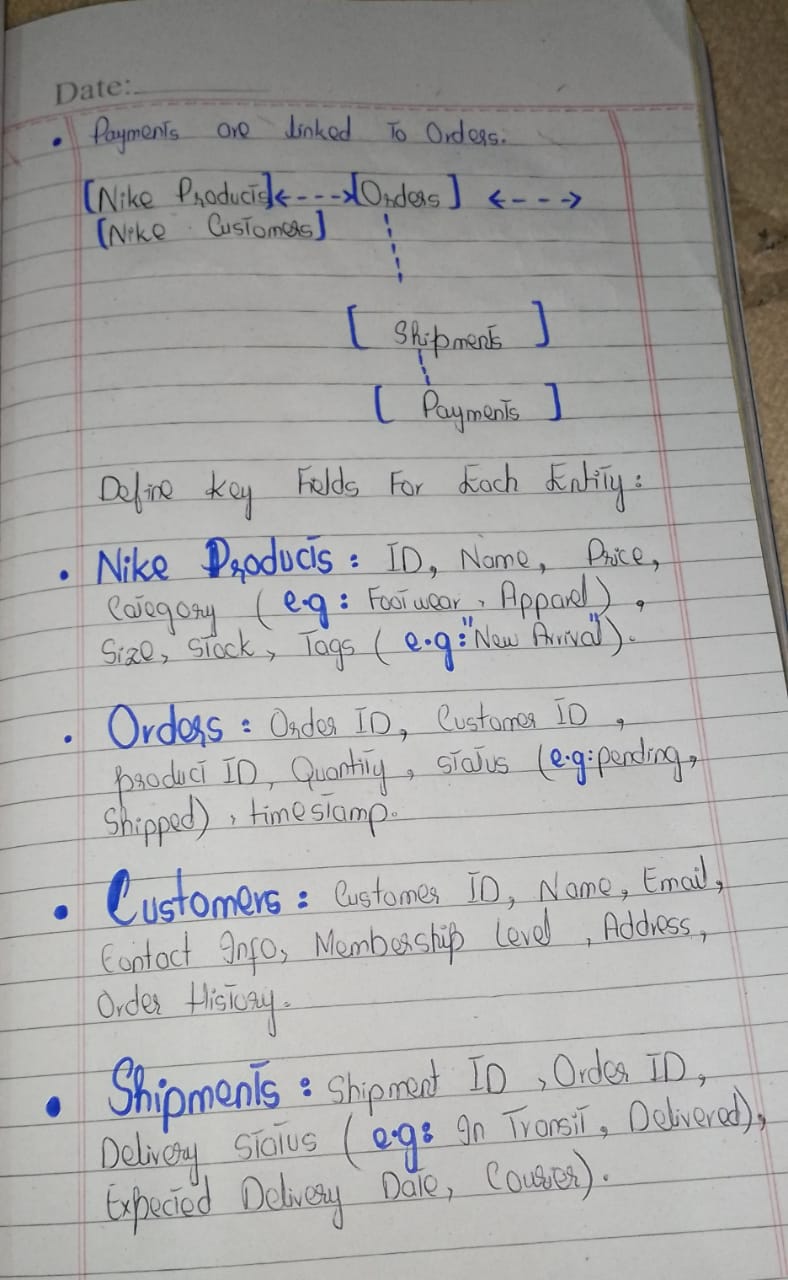 Date:
• Payments are linked To Orders.
[Nike Products]<--->[Orders] <--->
[Nike Customers]
[ Shipments ]
[ Payments ]
Define Key Fields For Each Entity:
• Nike Products: ID, Name, Price,
Category (e.g: Footwear, Apparel),
Size, Stock, Tags (e.g:"New Arrival").
• Orders: Order ID, Customer ID,
product ID, Quantity, status (e.g:pending,
Shipped), timestamp.
• Customers: Customer ID, Name, Email,
Contact Info, Membership Level, Address,
Order History.
• Shipments: Shipment ID, Order ID,
Delivery Status (e.g: In Transit, Delivered),
Expected Delivery Date, Courier).